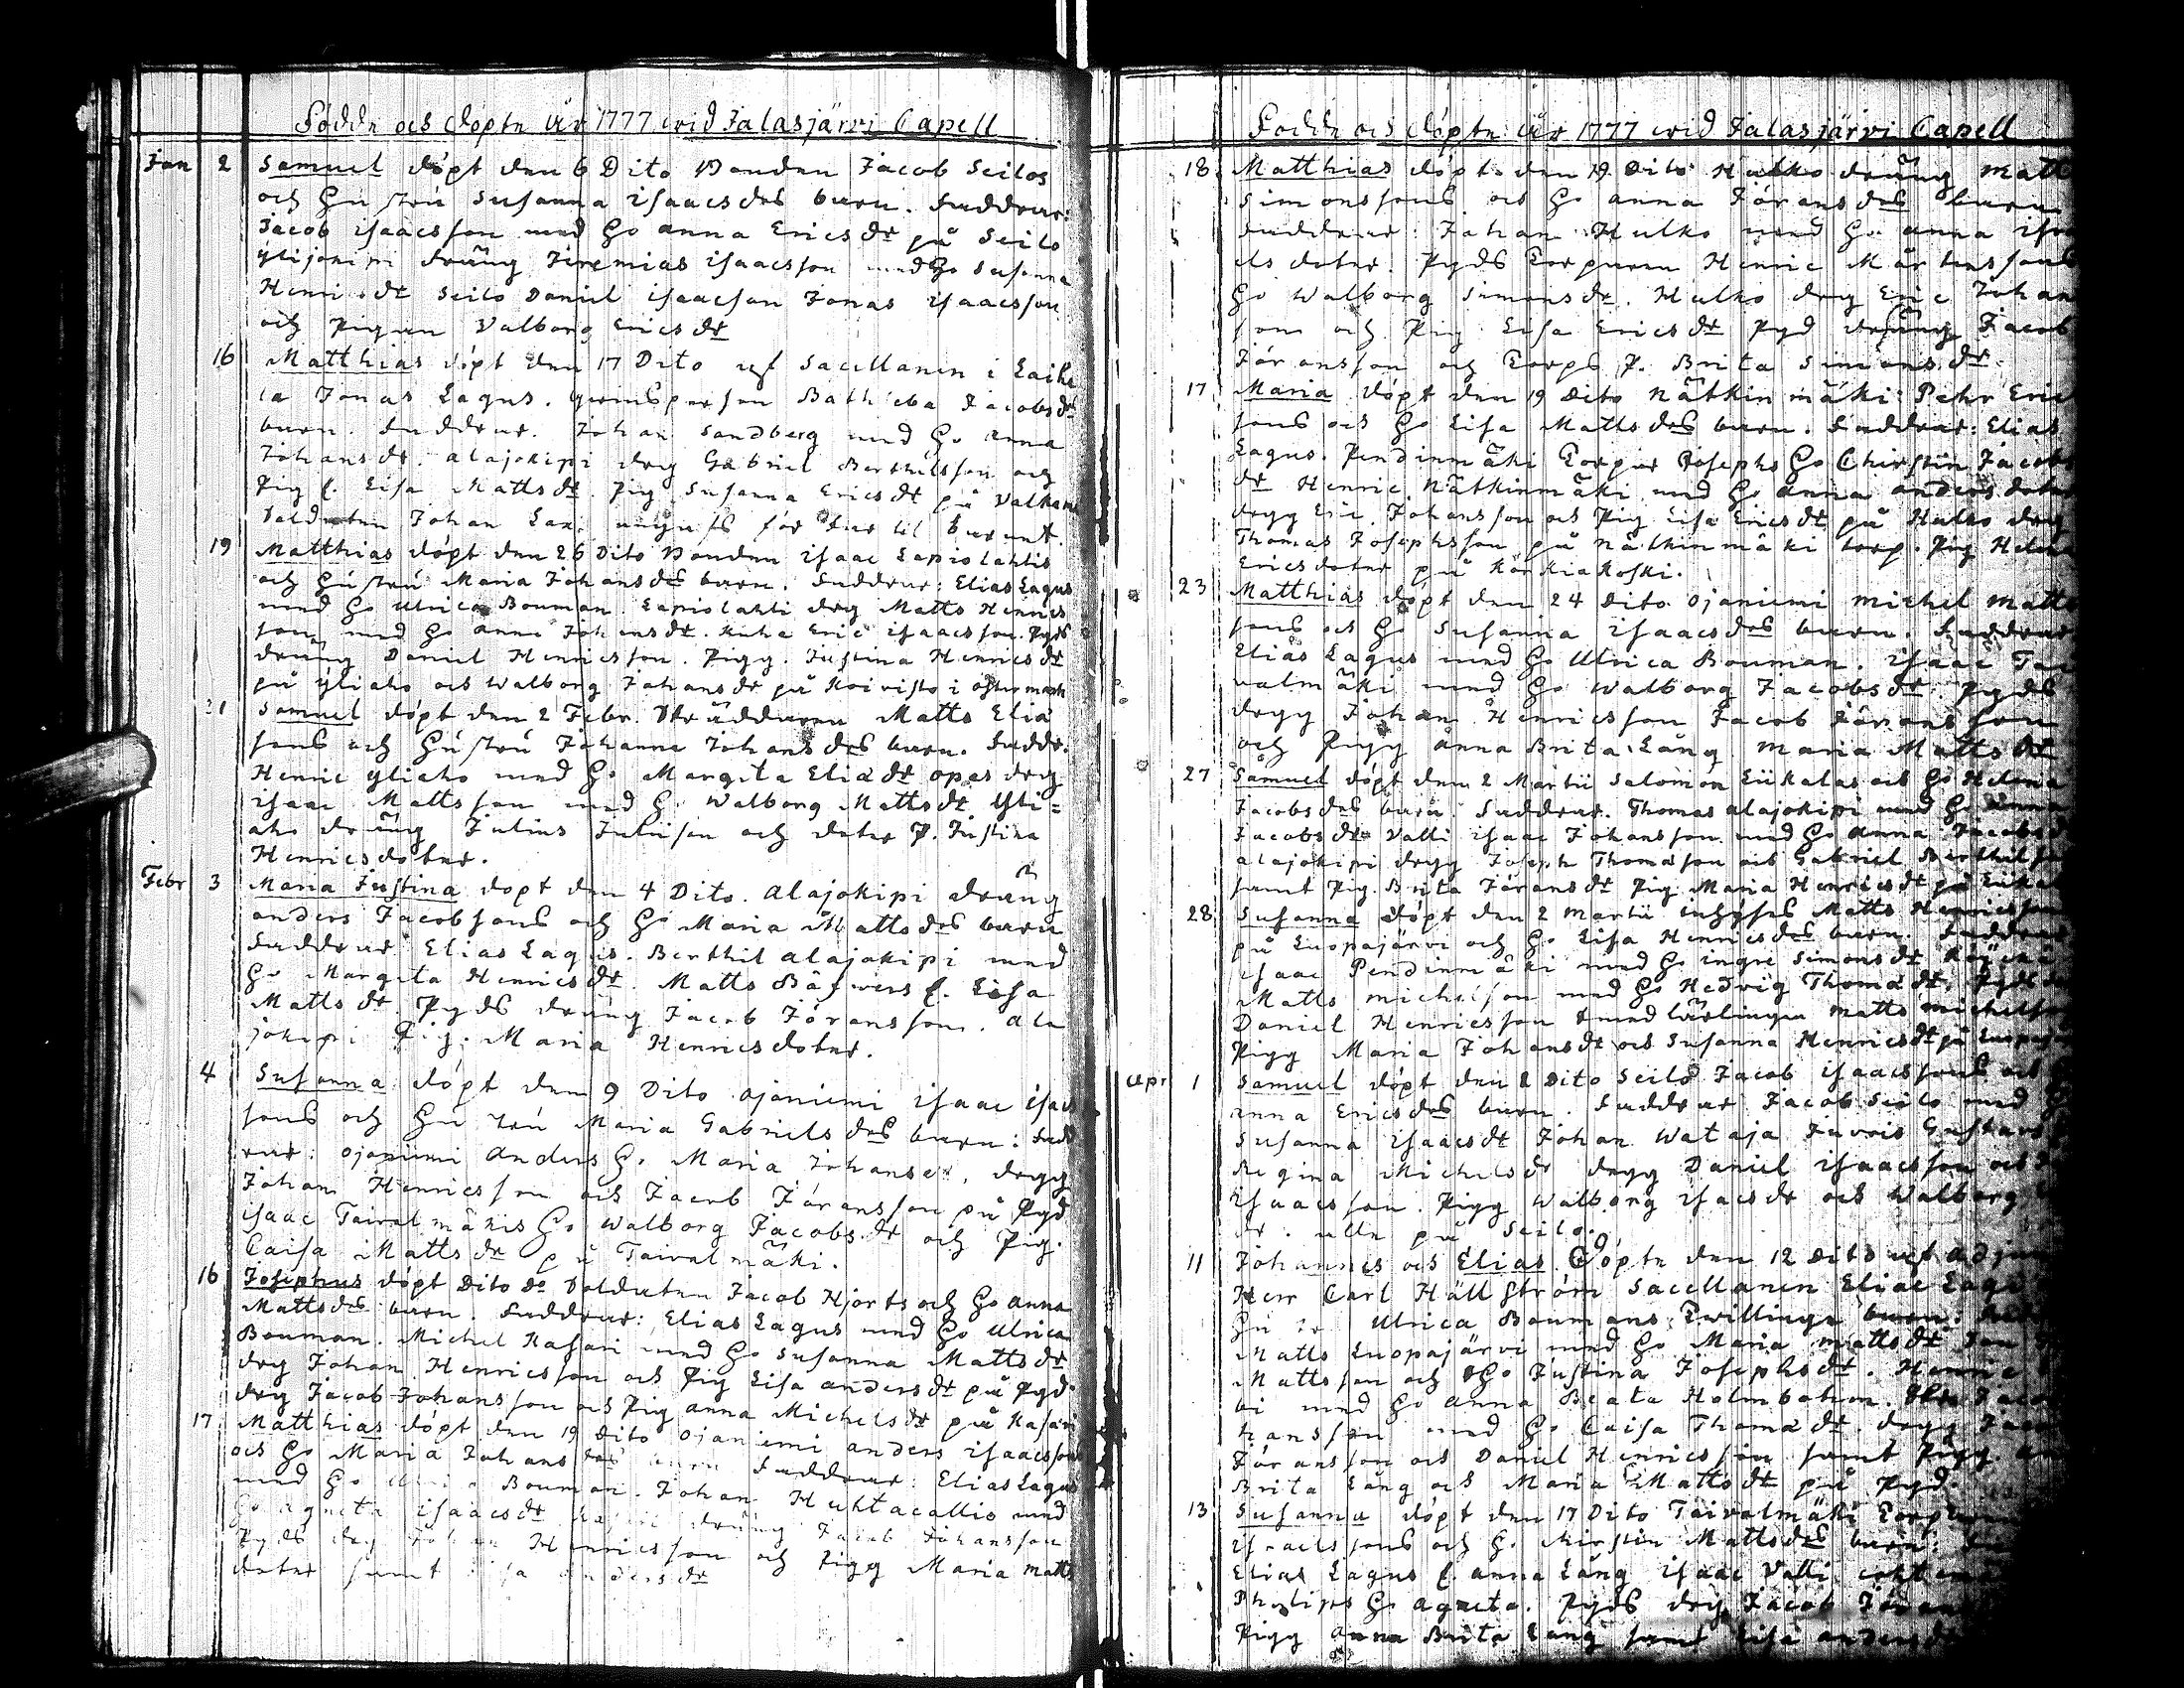 Födde och döpte År 1777 wid Jalasjärvi Capell
Jan 2 Samuel döpt den 6 Dito Bonden Jacob Seilos
och Hustru Susanna Isaacsdrs barn. Faddrar:
Jacob Isaacsson med H° Anna Ericsdr på Seilo
Ylijokipi dräng Jeremias Isaacsson med H° Susanna
Henricsdr Seilo Daniel Isaacsson Jonas Isaacsson
och Pigan Valborg Ericsdr
16 Matthias döpt den 17 Dito af Sacellanen i Laihe
la Jonas Lagus. Qwinspersson Bathseba Jacobsdrs
barn. Faddrar. Johan Sandberg med H° Anna
Johansdr. Alajokipi drg Gabriel Berthilsson och
Pig f. Lisa Mattsdr. Pig Susanna Ericsdr på
Soldaten Johan Lax. för far til barnet.
19 Matthias döpt den 26 Dito Bonden Isaac Lapiolahtis
och Hustru Maria Johansdrs barn. Faddrar: Elias Lagus
med H° Ulrica Bouman. Lapiolahti drg Matts Henrics
son med H° Anna Johansdr. Kuha Eric Isaacsson. Pyds
dräng Daniel Henricsson. Pigg. Justina Henricsdr
på Yliaho och Walborg Johansdr på Koivisto i
31 Samuel döpt den 2 Febr. Skräddaren Matts Elia
sons och Hustru Johanna Johansdrs barn. Faddr.
Henric Yliaho med H° Margeta Eliädr Opas drg
Isaac Mattsson med H° Walborg Mattsdr Yli=
aho dräng Julius Juliison och dotr P. Justina
Henricsdoter.
Febr 3 Maria Justina döpt den 4 Dito. Alajokipi dräng
Anders Jacobsons och H° Maria Mattsdrs barn
Faddrar Elias Lagus. Berthil Alajokipi med
H° Margeta Henricsdr. Matts Bäfwers f. Lisa
Mattsdr. Pyds dräng Jacob Jöransson. Ala
jokipi Pig. Maria Henricsdoter.
4 Susanna döpt den 9 Dito Ojaniemi Isaac Isac
sons och Hustru Maria Gabrielsdrs barn: Fadd
rar: Ojaniemi Anders H° Maria Johansdr, drgg
Johan Henricsson och Jacob Jöransson på Pyd
Isaac Taivalmäkis H° Walborg Jacobsdr och Pig.
Caisa Mattsdr på Taivalmäki.
16 Josephus döpt Dito D° Soldaten Jacob Hjorts och H° Anna
Mattsdrs barn. Faddrar: Elias Lagus med H° Ulrica
Bouman. Michel Kasari med H° Susanna Mattsdr
drg Johan Henricsson och Pig Lisa Andersdr på Pyd.
drg Jacob Johansson och Pig Anna Michelsdr på Kasari
17 Matthias döpt den 19 Dito Ojaniemi Anders Isaacssons
och H° Maria Johansdrs barn Faddrar: Elias Lagus
med H° Ulrica Bouman. Johan Huhtacallio med
H° Agneta Isaacsdr dräng Jacob Johansson
Pyds drg Johan Henricsson och Pigg Maria Matts
doter samt Lisa Andersdr
Födde och döpte År 1777 wid Jalasjärvi Capell
18 Matthias döpt den 19 Dito Hulko dräng Matts
Simonssons och H° Anna Jöransdrs barn
Faddrar: Johan Hulko med H° Anna
doter. Pyds Torparen Henric Mårtenssons
H° Walborg Simonsdr. Hulko drg Eric Johan
son och Pig Lisa Ericsdr Pyd dräng Jacob
Jöransson och Torps P. Brita Simonsdr
17 Maria döpt den 19 Dito Nätkinmäki Pehr Eric
sons och H° Lisa Mattsdrs barn. Faddrar: Elias
Lagus. Pendinmäki Torpar Josephs H° Chirstin Jacobs
dr Henric Nätkinmäki med H° Anna Andersdoter
drgg Eric Johansson och Pig Lisa Ericsdr på Hulko drg
Thomas Josephsson på Nätkinmäki torp. Pig Helena
Ericsdoter på Körkiakoski.
23 Matthias döpt den 24 Dito Ojaniemi Michel Matts
sons och H° Susanna Isaacsdrs barn. Faddrar
Elias Lagus med H° Ulrica Bouman. Isaac Tai
valmäki med H° Walborg Jacobsdr. Pyds
drgg Johan Henricsson Jacob Jöransson
och Pigg Anna Brita Lång Maria Mattsdr
27 Samuel döpt den 2 Martii Salomon Liikalas och H° Helena
Jacobsdrs barn. Faddrar. Thomas Alajokipi med H° Anna
Jacobsdr Valli Isaac Johansson med H° Anna Jacobsd
Alajokipi drgg Joseph Thomasson och Gabriel Berthilsson
samt Pig. Brita Jöransdr Pig Maria Henricsdr på
28 Susanna döpt den 2 Martii inhyses Matts Henricsson
på Luopajärvi och H° Lisa Henricsdrs barn. Faddrar
Isaac Pendinmäki med H° Ingre Simonsdr
Matts Michelson med H° Hedvig Thomädr. Pyds
Daniel Henricsson med lärlingen Matts Michelsson
Pigg Maria Johansdr och Susanna Henricsdr på Luopajärvi
Apr 1 Samuel döpt den 2 Dito Seilo Jacob Isaacssons och
Anna Ericsdrs barn. Faddrar Jacob Seilo med H°
Susanna Isaacsdr Johan Wataja
Regina Michelsdr drgg Daniel Isaacsson och
Isaacsson. Pigg Walborg Isacsdr och Walborg
dr. alla på Seilo.
11 Johannes och Elias Döpte den 12 Dito af Adjun
Herr Carl Hällström Sacellanen Eliae Lagi
Ulrica Boumans Twillinge barn.
Matts Luopajärvi med H° Maria Mattsdr
Mattsson och H° Justina Josephsdr. Henric
med H° Anna Beata Holmbohm. Jacob
hansson med H° Caisa Thomädr. drgg Jacob
Jöransson och Daniel Henricsson samt Pigg. An
Brita Lång och Maria Mattsdr på Pyd.
13 Susanna döpt den 17 Dito Taivalmäki Torparen
Israelssons och H° Kirstin Mattsdrs barn:
Elias Lagus f. Anna Lång Isaac Valli
Philips H° Agneta. Pyds drg Jacob Jöran
Pigg Anna Brita Lång samt Lisa Andersdr